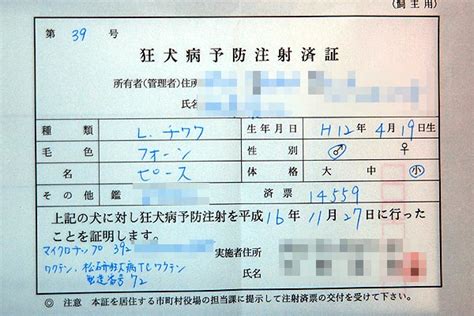 (飼主用)
第 39 号
狂犬病予防注射済証
所有者(管理者)住所
氏名
種類 L. チワワ 生年月日 H12年4月19日生
毛色 フォーン 性別 ♂ ♀
名 ピース 体格 大 中 小
その他 鑑 済票 14559
上記の犬に対し狂犬病予防注射を平成16年11月27日に行った
ことを証明します。
マイクロチップ 392
実施者住所
ワクチン、松研狂犬病TCワクチン
氏名
製造番号 72
◎ 注意 本証を居住する市町村役場の担当課に提示して注射済票の交付を受けて下さい。